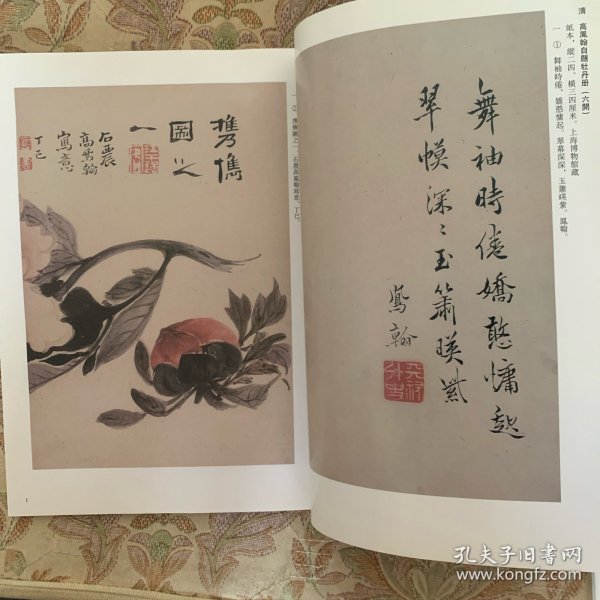 清 高鳳翰自題牡丹册（六開）
紙本，縱二四、橫三四厘米。上海博物館藏
一 ① 舞袖時倦，嬌憨慵起。翠幕深深，玉簫暎紫。鳳翰。
舞袖時倦嬌憨慵起
翠幙深〻玉簫暎紫
鳳翰
石農高鳳翰寫意。丁巳。
雋
圖之
一
石農
高鳳翰
寫意
丁巳
1
孔夫子旧书网
www.kongfz.com